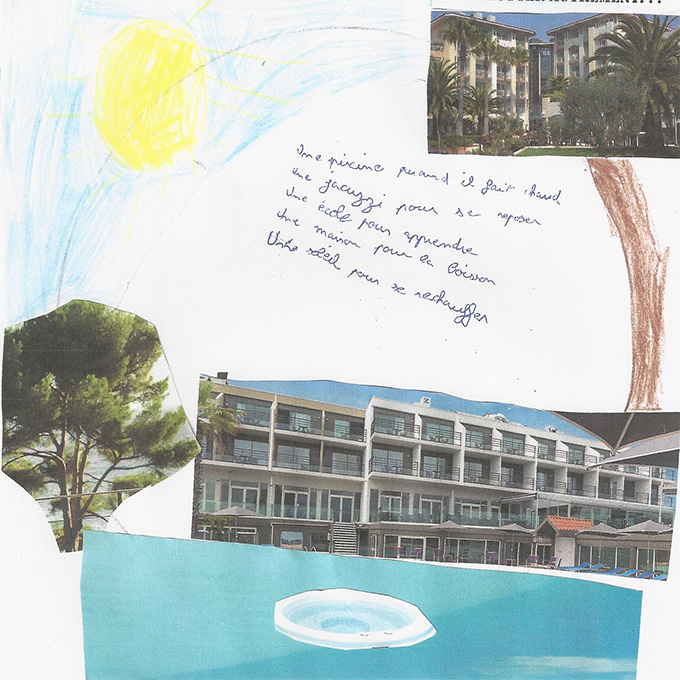 Une piscine quand il fait chaud
Une jacuzzi pour se reposer
Une école pour apprendre
Une maison pour la boisson
Une soleil pour se rechauffer